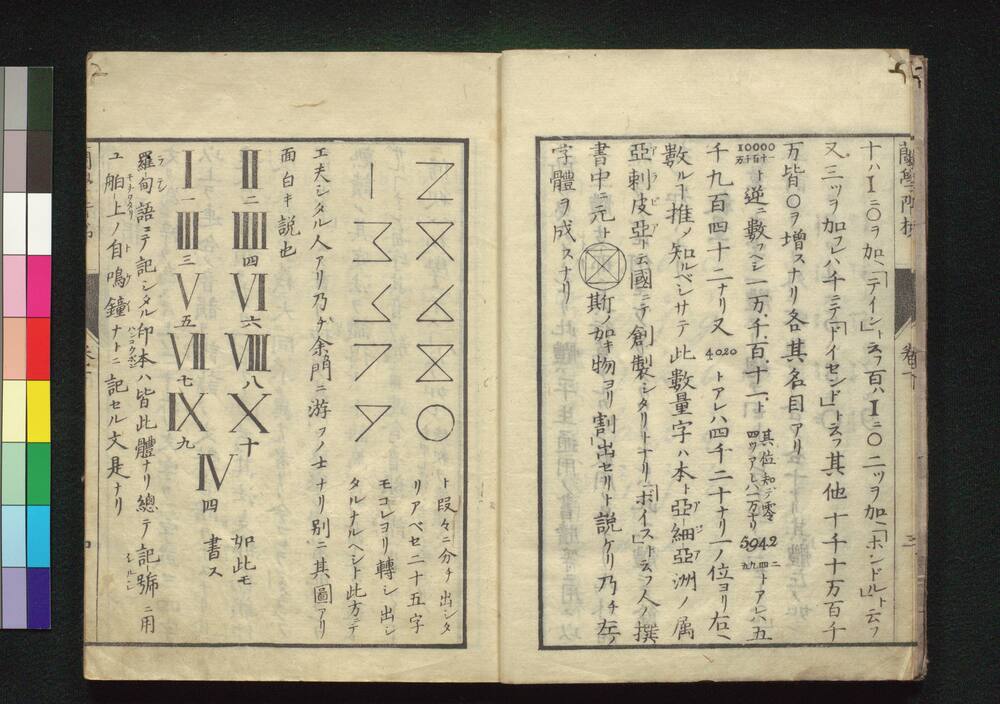 十ハIニ〇ヲ加ヘ「テイイン」ト云フ百ハIニ〇二ツヲ加ヘ「ホンドルト」ト云フ
又ニ三ッヲ加フレハ千ニテ「ドイセンド」ト云フ其他十千十万百千
万皆〇ヲ増スナリ各其名目アリ
10000 一十百千万 逆ニ数フヘシ一万、千、百、十一ト 其位ヲ知デ零四ツアレハ一万ナリ 5942 二四九五 トアレハ五
千九百四十二ナリ又 4020 トアレハ四千二十ナリ一ノ位ヨリ右ヘ
數ルト推メ知ルベシサテ此數量字ハ本ト亞細亞洲ノ属
亞剌皮亞ト云國ニテ創製シタリトナリ「ボイス」ト云フ人ノ撰
書中ニ元ト斯ノ如キ物ヨリ割出セリト説ケリ乃チ左ノ
字體ヲ成スナリ
ト段々ニ分チ出シタ
リアベセ二十五字
モコレヨリ轉シ出シ
タルナルヘシト此方ニテ
工夫シタル人アリ乃チ余門ニ游フノ士ナリ別ニ其圖アリ
面白キ説也
II 二 IIII 四 VI 六 VIII 八 X 十 如此モ
I 一 III 三 V 五 VII 七 IX 九 IV 四 書ス
羅甸語ニテ記シタル印本ハ皆此體ナリ總テ記號ニ用
ユ舶上ノ自鳴鐘ナトニ記セル文是ナリ